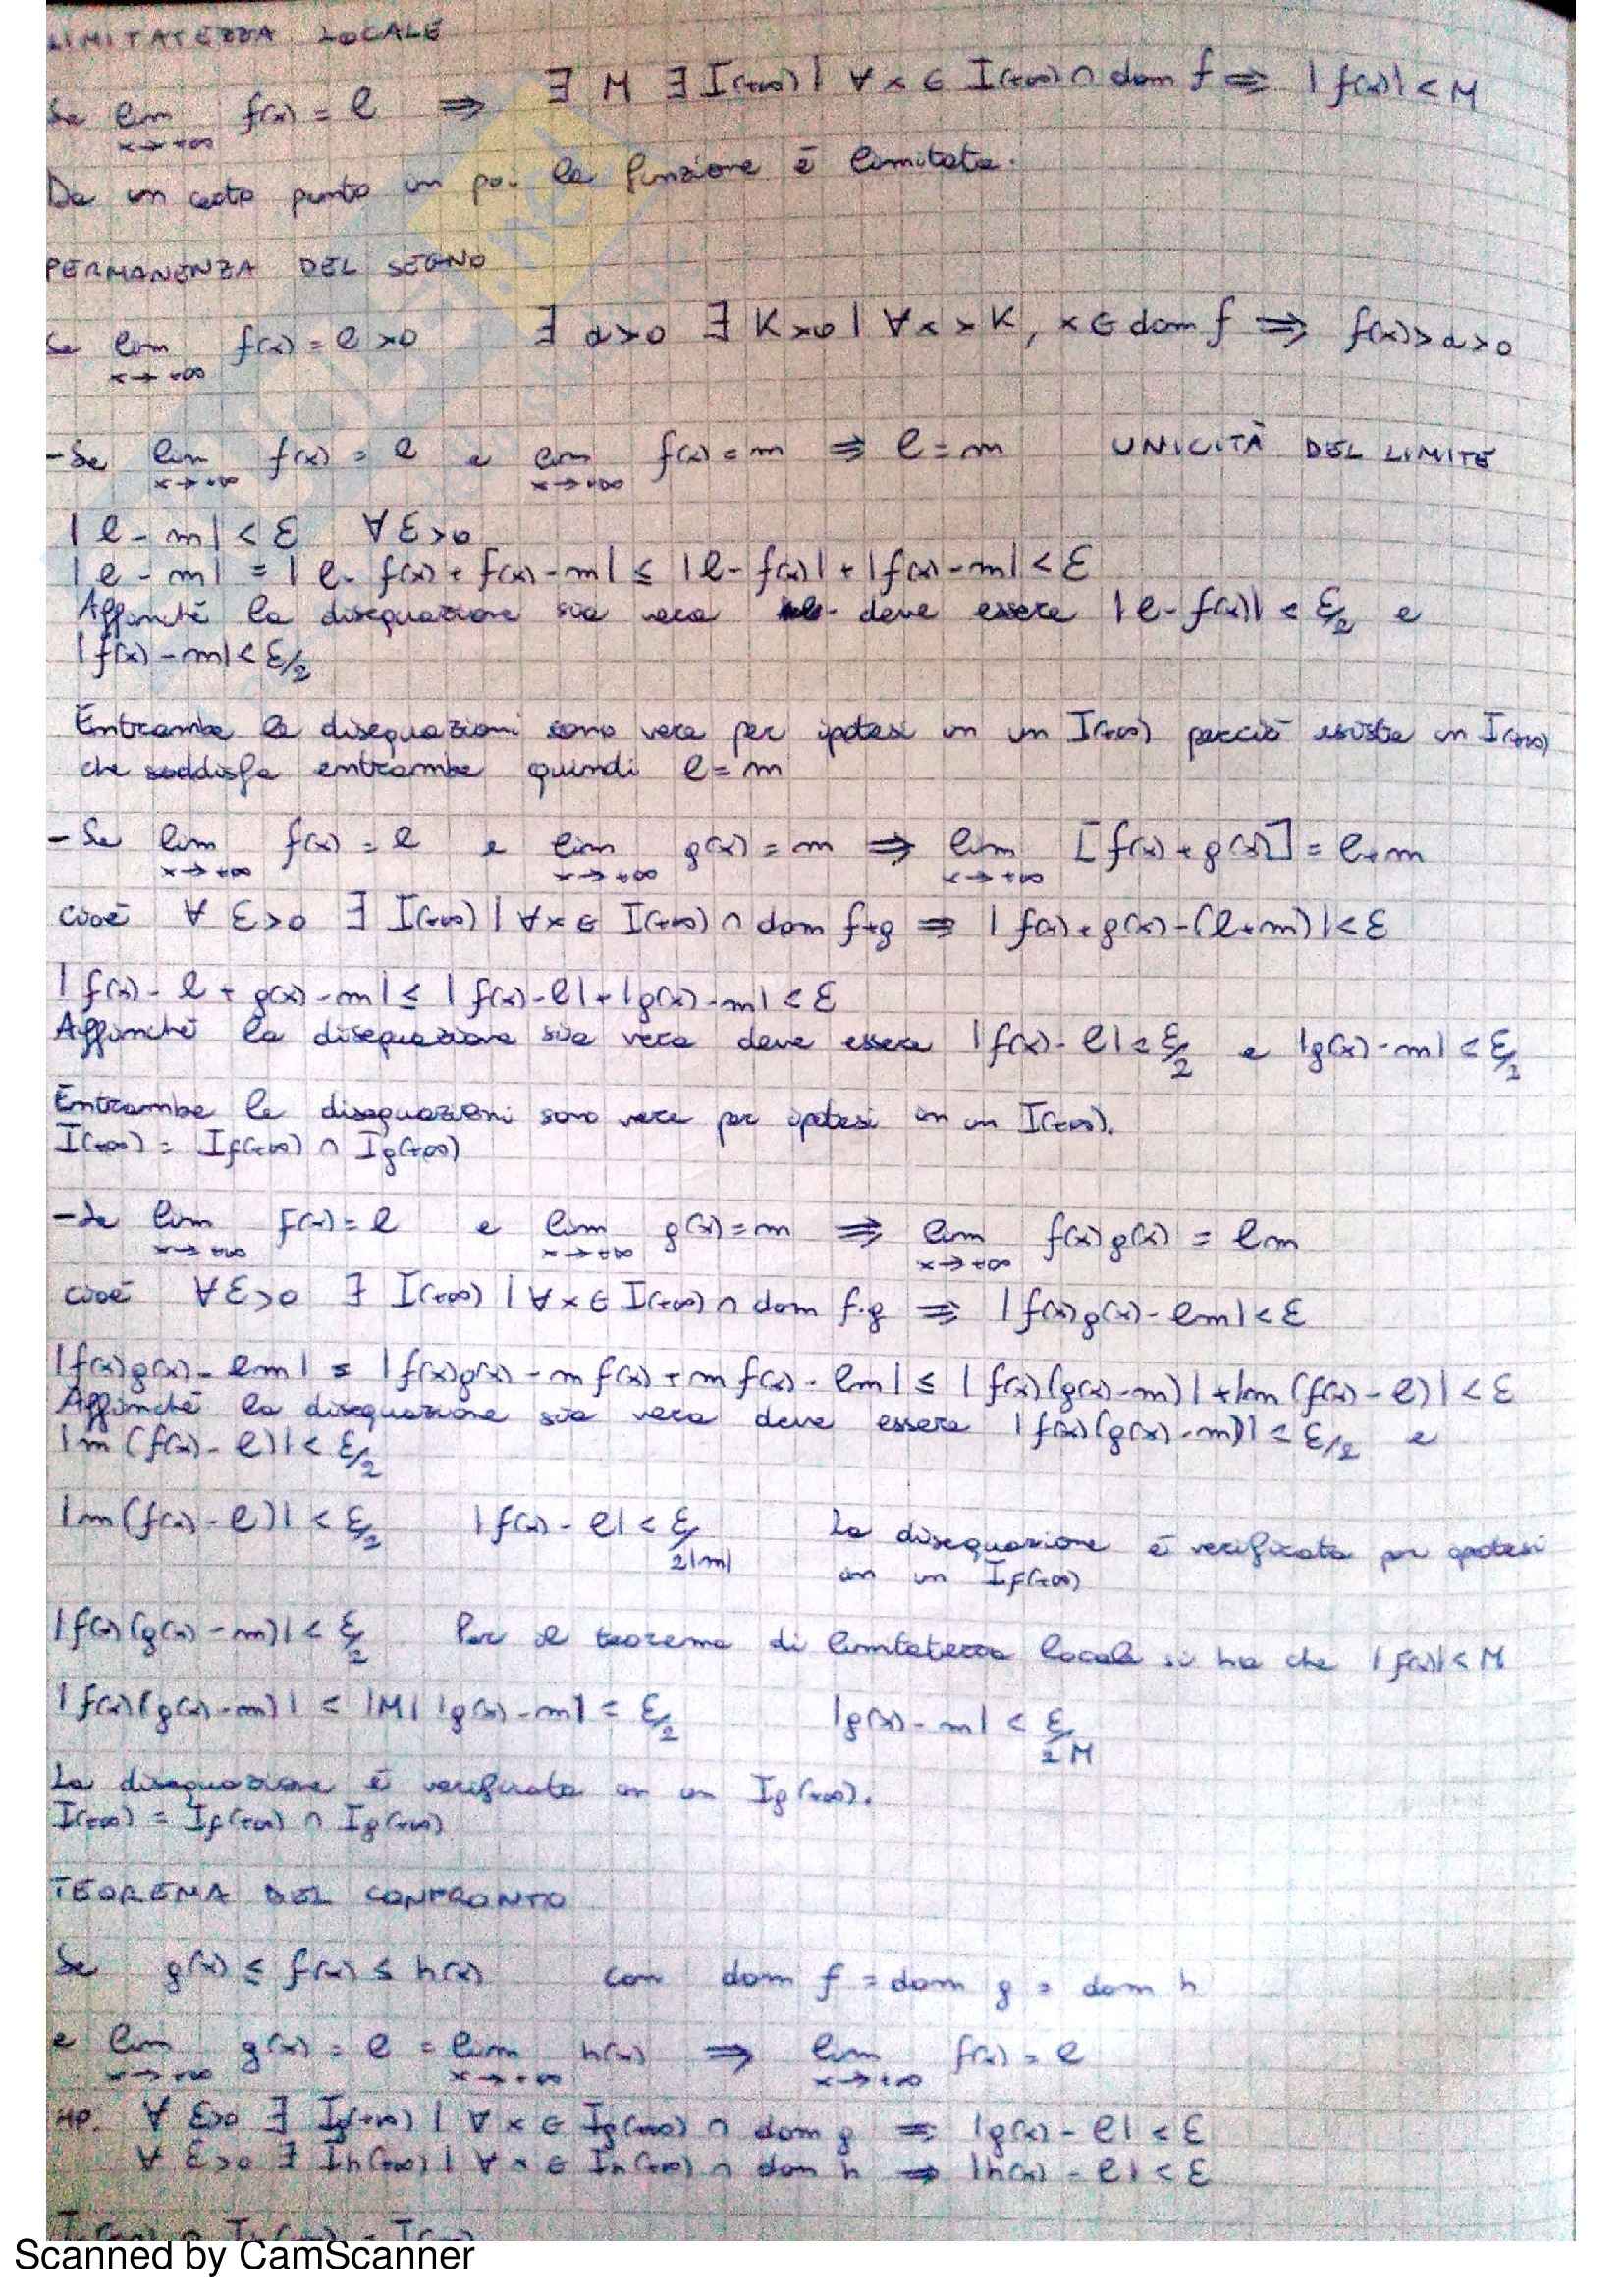 LIMITATEZZA LOCALE
Se lim x→+∞ f(x) = l ⇒ ∃ M ∃ I(+∞) | ∀ x ∈ I(+∞) ∩ dom f ⇒ |f(x)| < M
Da un certo punto in poi la funzione è limitata.
PERMANENZA DEL SEGNO
Se lim x→+∞ f(x) = l > 0 ∃ α > 0 ∃ K > 0 | ∀ x > K, x ∈ dom f ⇒ f(x) > α > 0
- Se lim x→+∞ f(x) = l e lim x→+∞ f(x) = m ⇒ l = m UNICITÀ DEL LIMITE
|l - m| < ε ∀ ε > 0
|l - m| = |l - f(x) + f(x) - m| ≤ |l - f(x)| + |f(x) - m| < ε
Affinché la disequazione sia vera deve essere |l - f(x)| < ε/2 e
|f(x) - m| < ε/2
Entrambe le disequazioni sono vere per ipotesi in un I(+∞) perciò esiste un I(+∞)
che soddisfa entrambe quindi l = m
- Se lim x→+∞ f(x) = l e lim x→+∞ g(x) = m ⇒ lim x→+∞ [f(x) + g(x)] = l + m
cioè ∀ ε > 0 ∃ I(+∞) | ∀ x ∈ I(+∞) ∩ dom f+g ⇒ |f(x) + g(x) - (l + m)| < ε
|f(x) - l + g(x) - m| ≤ |f(x) - l| + |g(x) - m| < ε
Affinché la disequazione sia vera deve essere |f(x) - l| < ε/2 e |g(x) - m| < ε/2
Entrambe le disequazioni sono vere per ipotesi in un I(+∞).
I(+∞) = If(+∞) ∩ Ig(+∞)
- Se lim x→+∞ f(x) = l e lim x→+∞ g(x) = m ⇒ lim x→+∞ f(x)g(x) = lm
cioè ∀ ε > 0 ∃ I(+∞) | ∀ x ∈ I(+∞) ∩ dom f·g ⇒ |f(x)g(x) - lm| < ε
|f(x)g(x) - lm| = |f(x)g(x) - m f(x) + m f(x) - lm| ≤ |f(x)(g(x) - m)| + |m(f(x) - l)| < ε
Affinché la disequazione sia vera deve essere |f(x)(g(x) - m)| < ε/2 e
|m(f(x) - l)| < ε/2
|m(f(x) - l)| < ε/2 |f(x) - l| < ε/2|m| La disequazione è verificata per ipotesi
in un If(+∞)
|f(x)(g(x) - m)| < ε/2 Per il teorema di limitatezza locale si ha che |f(x)| < M
|f(x)(g(x) - m)| < |M| |g(x) - m| < ε/2 |g(x) - m| < ε/2M
La disequazione è verificata in un Ig(+∞).
I(+∞) = If(+∞) ∩ Ig(+∞)
TEOREMA DEL CONFRONTO
Se g(x) ≤ f(x) ≤ h(x) con dom f = dom g = dom h
e lim x→+∞ g(x) = l = lim x→+∞ h(x) ⇒ lim x→+∞ f(x) = l
HP. ∀ ε>0 ∃ Ig(+∞) | ∀ x ∈ Ig(+∞) ∩ dom g ⇒ |g(x) - l| < ε
∀ ε>0 ∃ Ih(+∞) | ∀ x ∈ Ih(+∞) ∩ dom h ⇒ |h(x) - l| < ε
Scanned by CamScanner